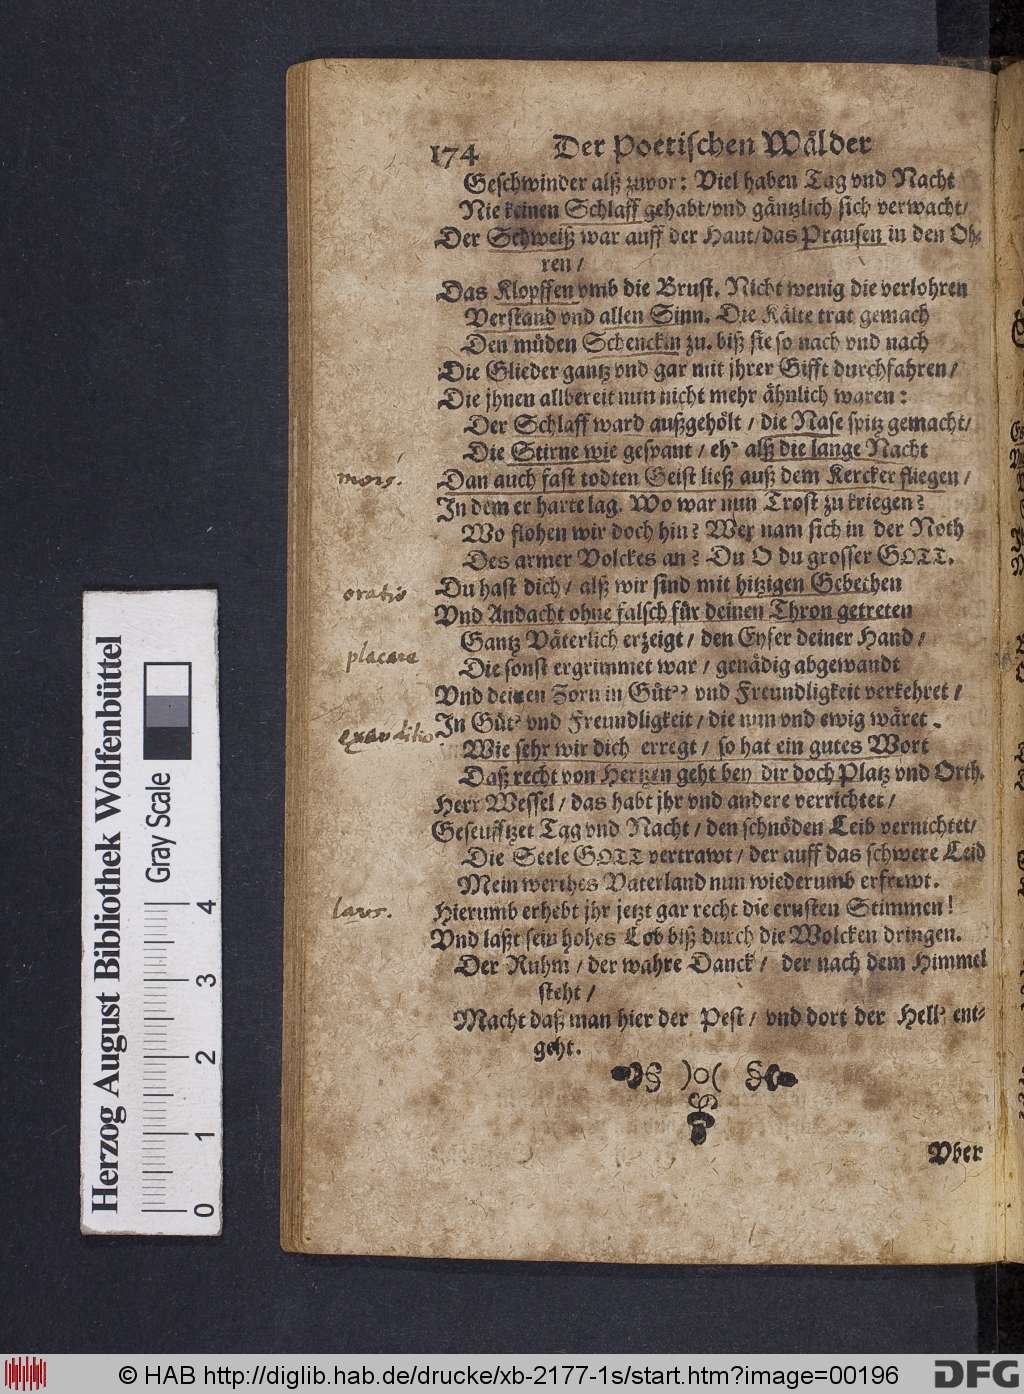 174 Der Poetischen Wälder
Geschwinder alß zuvor: Viel haben Tag vnd Nacht
Nie keinen Schlaff gehabt/vnd gäntzlich sich verwacht/
Der Schweiß war auff der Haut/das Prausen in den Oh-
ren /
Das Klopffen vmb die Brust. Nicht wenig die verlohren
Verstand vnd allen Sinn. Die Kälte trat gemach
Den müden Schenckln zu. biß sie so nach vnd nach
Die Glieder gantz vnd gar mit jhrer Gifft durchfahren/
Die jhnen allbereit nun nicht mehr ähnlich waren:
Der Schlaff ward außgehölt / die Nase spitz gemacht/
Die Stirne wie gespant / eh' alß die lange Nacht
mors.
Dan auch fast todten Geist ließ auß dem Kercker fliegen /
In dem er harte lag. Wo war nun Trost zu kriegen?
Wo flohen wir doch hin? Wer nam sich in der Noth
Des armer Volckes an? Du O du grosser GOTT.
oratio
Du hast dich / alß wir sind mit hitzigen Gebethen
Vnd Andacht ohne falsch für deinen Thron getreten
Gantz Väterlich erzeigt / den Eyfer deiner Hand /
placare
Die sonst ergrimmet war / genädig abgewandt
Vnd deinen Zorn in Güt' vnd Freundligkeit verkehret /
exauditio
In Güt' vnd Freundligkeit / die nun vnd ewig wäret.
Wie sehr wir dich erregt / so hat ein gutes Wort
Daß recht von Hertzen geht bey dir doch Platz vnd Orth.
Herr Wessel / das habt jhr vnd andere verrichtet /
Geseufftzet Tag vnd Nacht / den schnöden Leib vernichtet/
Die Seele GOTT vertrawt / der auff das schwere Leid
Mein werthes Vaterland nun wiederumb erfrewt.
laus.
Hierumb erhebt jhr jetzt gar recht die ernsten Stimmen!
Vnd laßt sein hohes Lob biß durch die Wolcken dringen.
Der Ruhm / der wahre Danck / der nach dem Himmel
steht /
Macht daß man hier der Pest / vnd dort der Hell' ent-
geht.
)o(
Vber
Herzog August Bibliothek Wolfenbüttel
Gray Scale
0 1 2 3 4
© HAB http://diglib.hab.de/drucke/xb-2177-1s/start.htm?image=00196
DFG